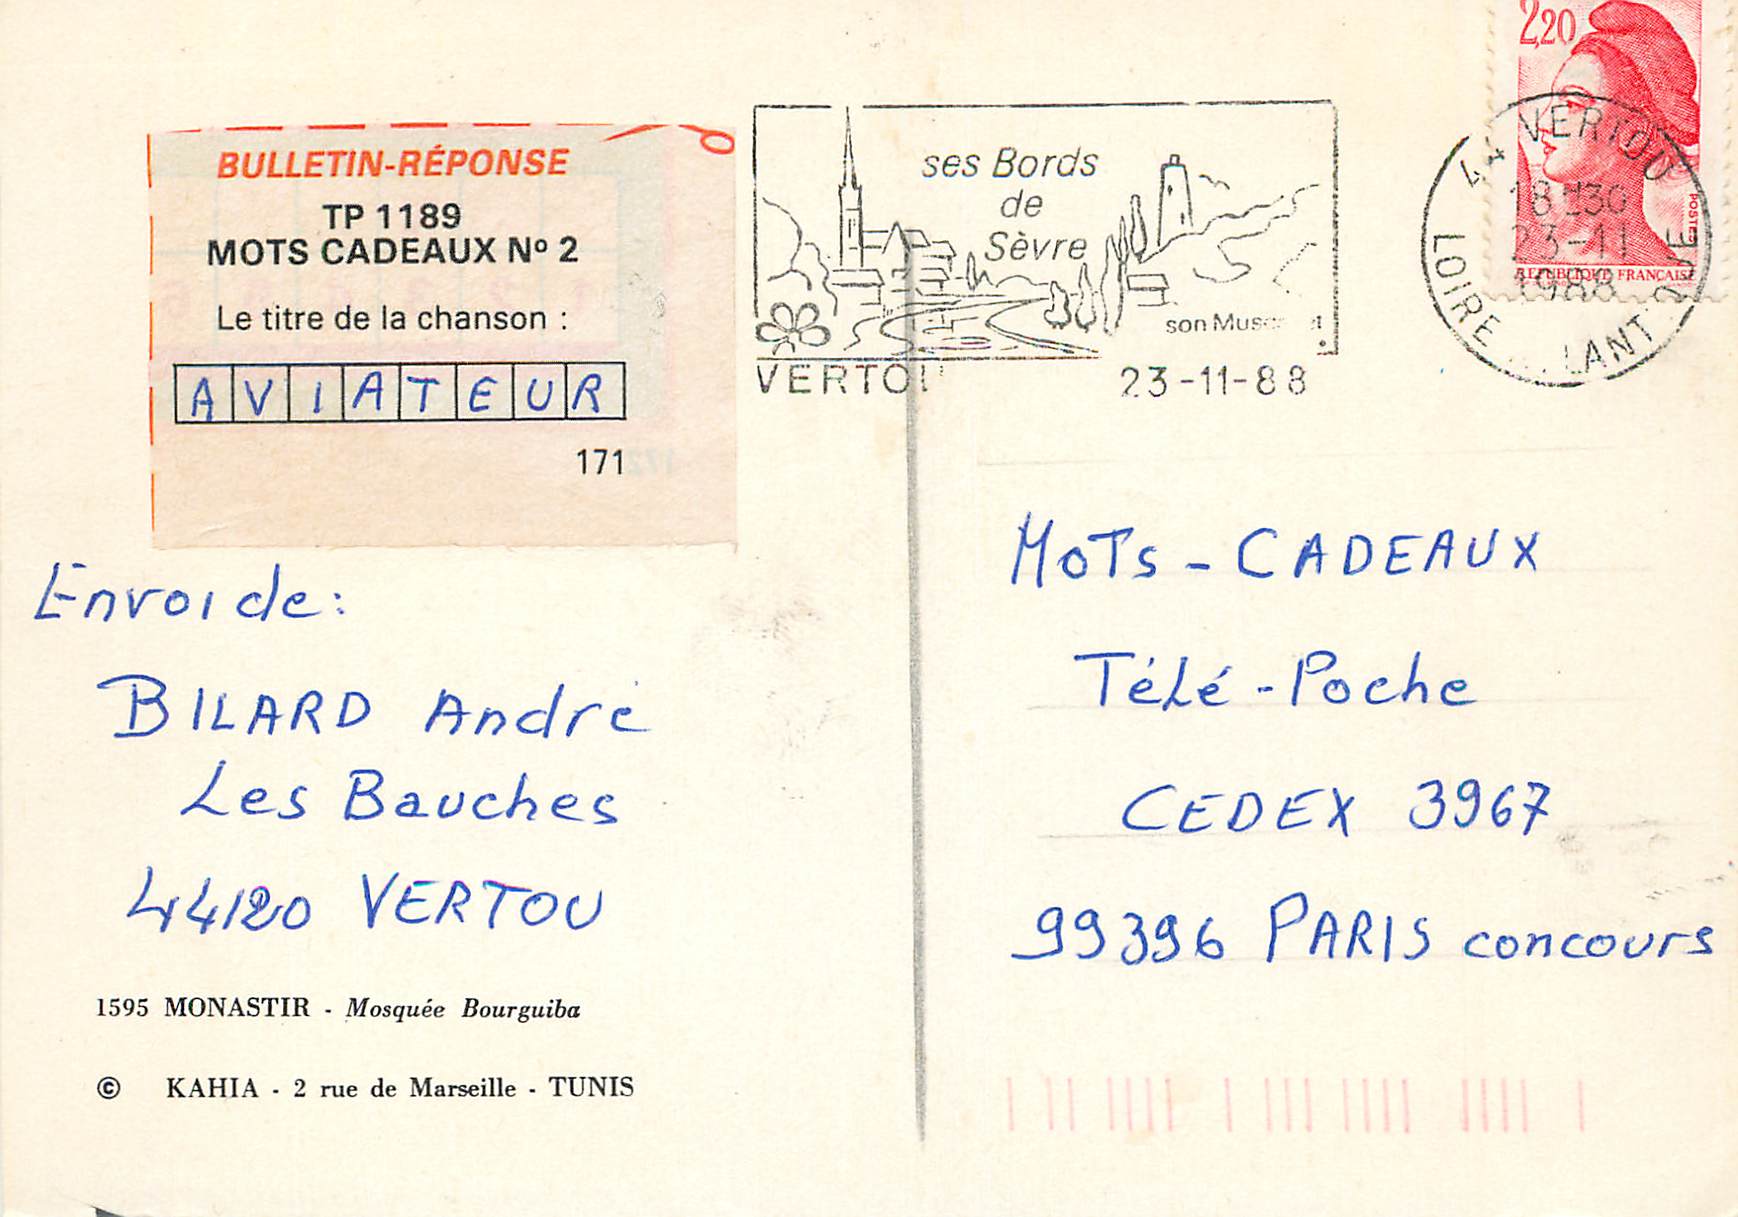 BULLETIN-RÉPONSE
TP 1189
MOTS CADEAUX Nº 2
Le titre de la chanson :
AVIATEUR
171
Envoi de:
BILARD André
Les Bauches
44120 VERTOU
1595 MONASTIR - Mosquée Bourguiba
© KAHIA - 2 rue de Marseille - TUNIS
ses Bords
de
Sèvre
son
VERTOU
23-11-88
2,20
POSTES
REPUBLIQUE FRANCAISE
44 VERTOU
18H30
23-11
1988
LOIRE ATLANTIQUE
MOTS - CADEAUX
TéLé - Poche
CEDEX 3967
99396 PARIS concours